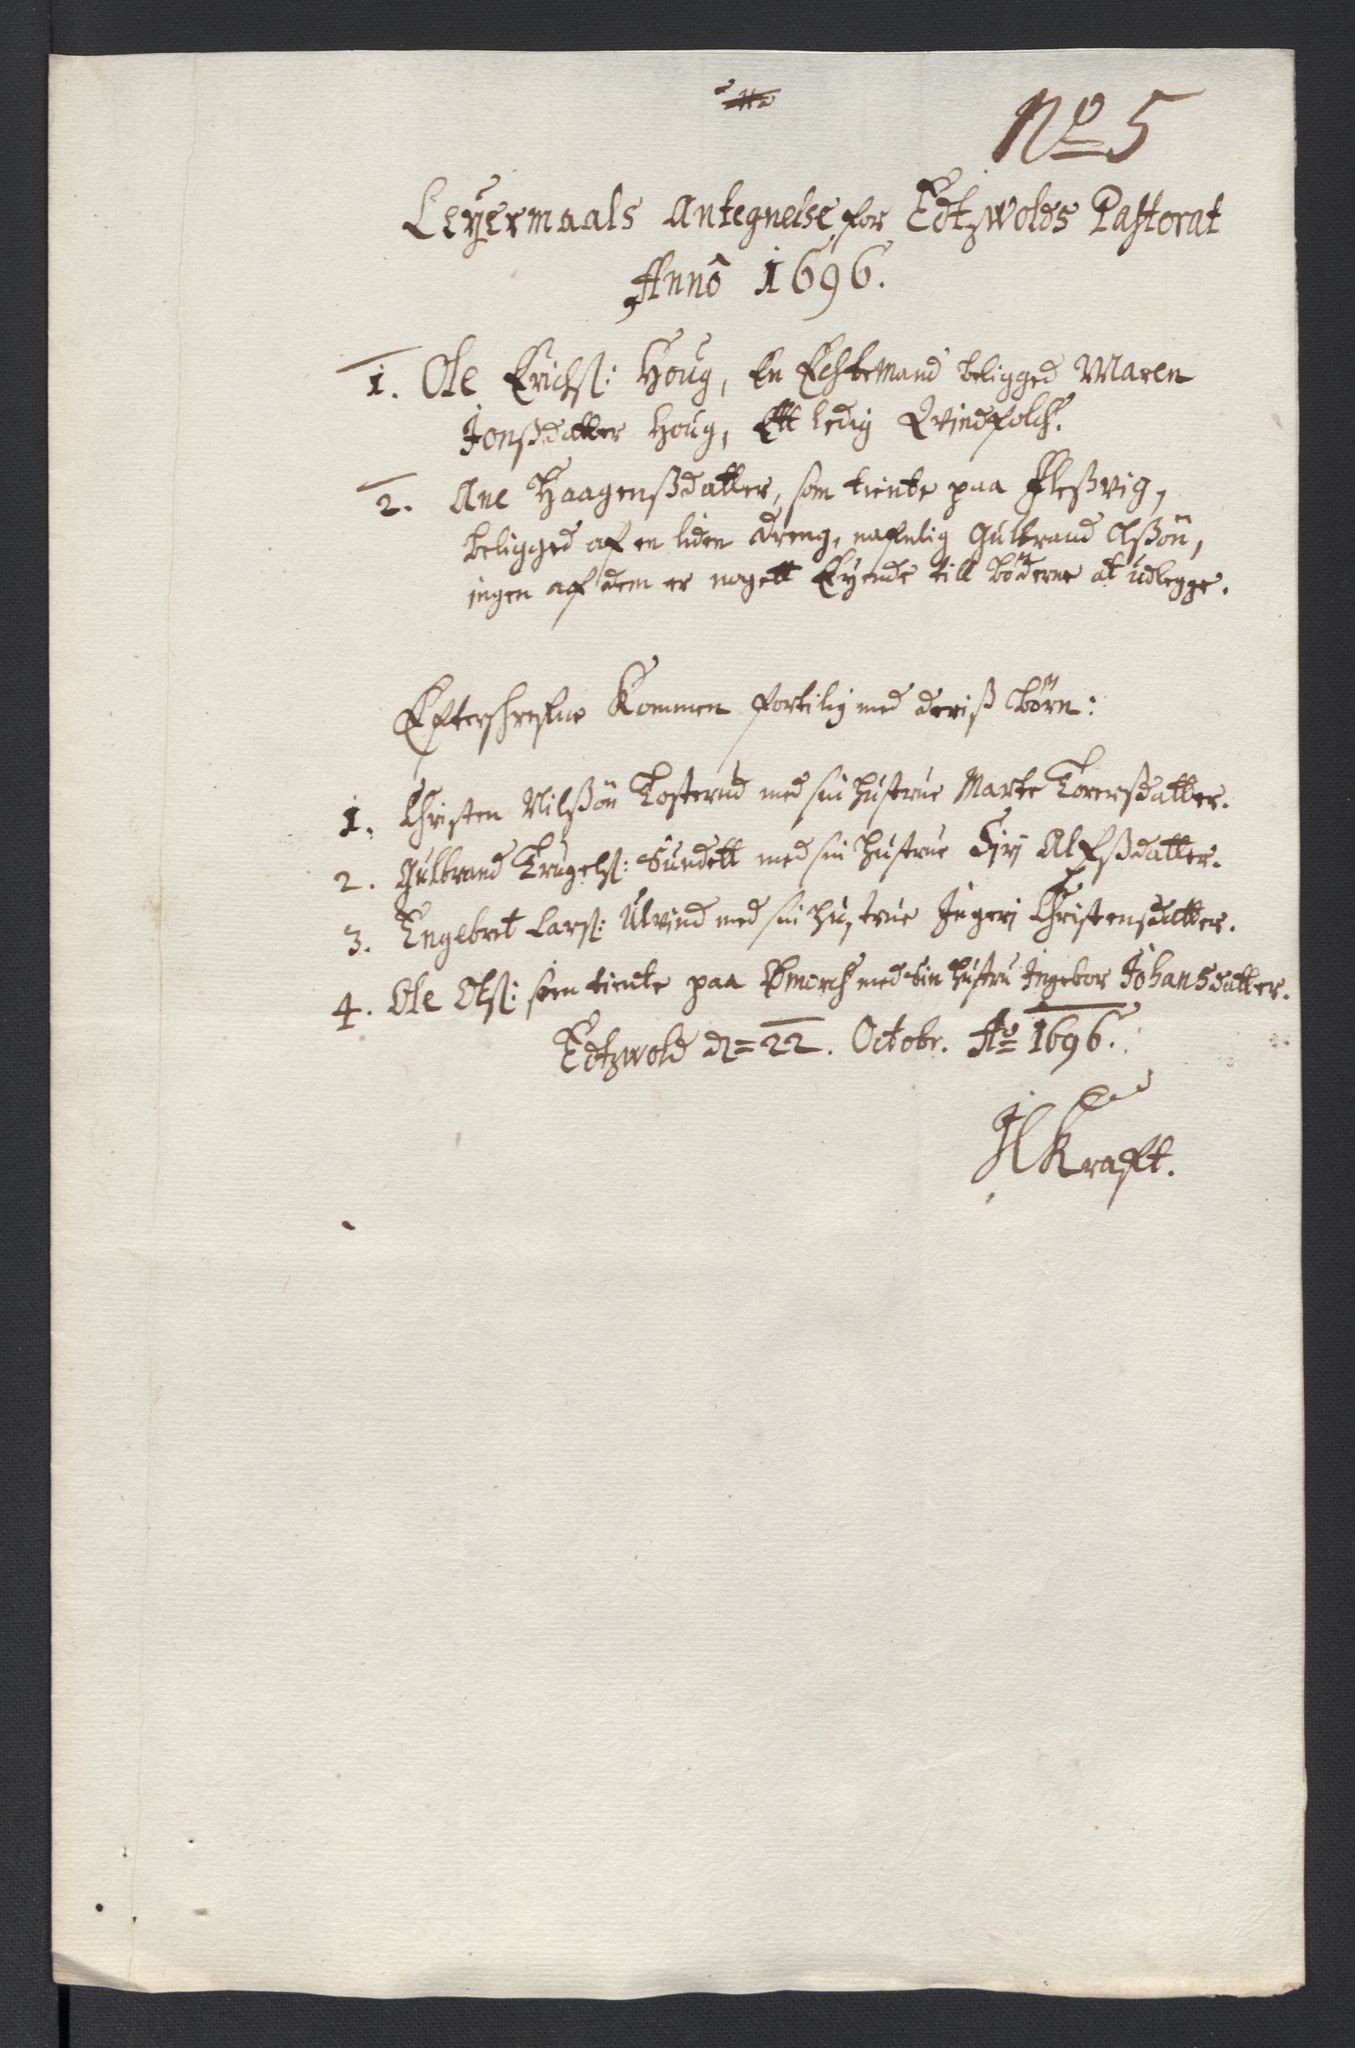 No 5
Leyermaals Antegnelse for Edtzwolds Pastorat
Anno 1696.
1. Ole Erichs: Houg, En Echtemand beligged Maren
Jonsdatter Houg, Ett ledig Qvindfolch.
2. Ane Haagenßdatter, som tiente paa Fleßvig,
beligged af en liden dreng, nafnlig Gulbrand Olßøn,
ingen af dem er nogett Eyende till bøderne at udlegge.
Efterschrefne Kommen fortilig med deriß børn:
1. Christen Nilßøn Tosterud med sin hustrue Marte Torersdatter.
2. Gulbrand Trugels: Sundett med sin hustrue Siri Alfßdatter.
3. Engebret Lars: Ulvind med sin hustrue Ingeri Christensdatter.
4. Ole Ols: som tiente paa med sin hustru Ingebor Johansdatter.
Edtzwold d= 22. Octobr. Ao 1696.
Kraft.